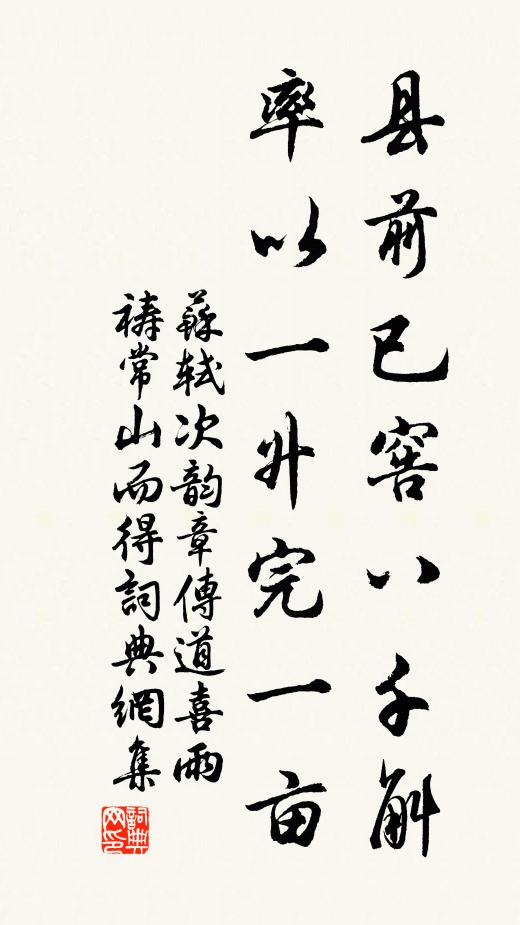 县前已窖八千斛
率以一升完一亩
蘇軾次韵章傳道喜雨
祷常山而得詞典網集
詞典
网印